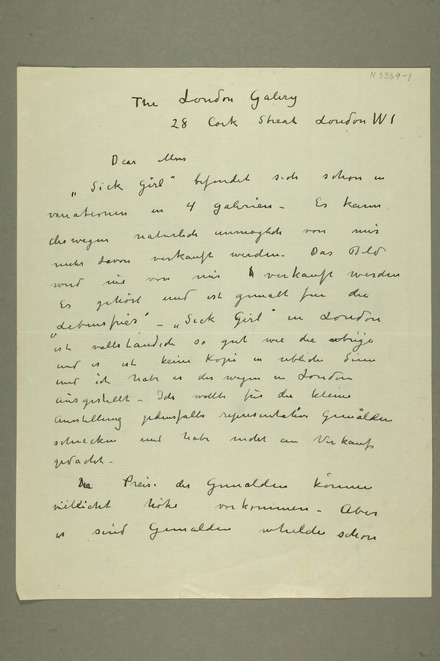 N 3369-1
The London Galery
28 Cork Streat London W1
Dear Mrs
"Sick Girl" befindet sich schon in
variationen in 4 galerien - Es kann
deswegen naturlich unmoglich von mir
mehr davon verkauft werden. Das Bild
wird nie von mir verkauft werden
Es gehört und ist gemalt fur die
"Lebensfries" - "Sick Girl" in London
ist vollständich so gut wie die ubrige
und es ist keine Kopi in ubliche Sinn
und ich habe es deswegen in London
ausgestellt - Ich wollte für die kleine
Ausstellung jedenfalls representative Gemälden
schicken und habe nicht an Verkauf
gedacht -
Die Preise der Gemalden können
vielleicht hohe vorkommen - Aber
es sind Gemalden whelche schon